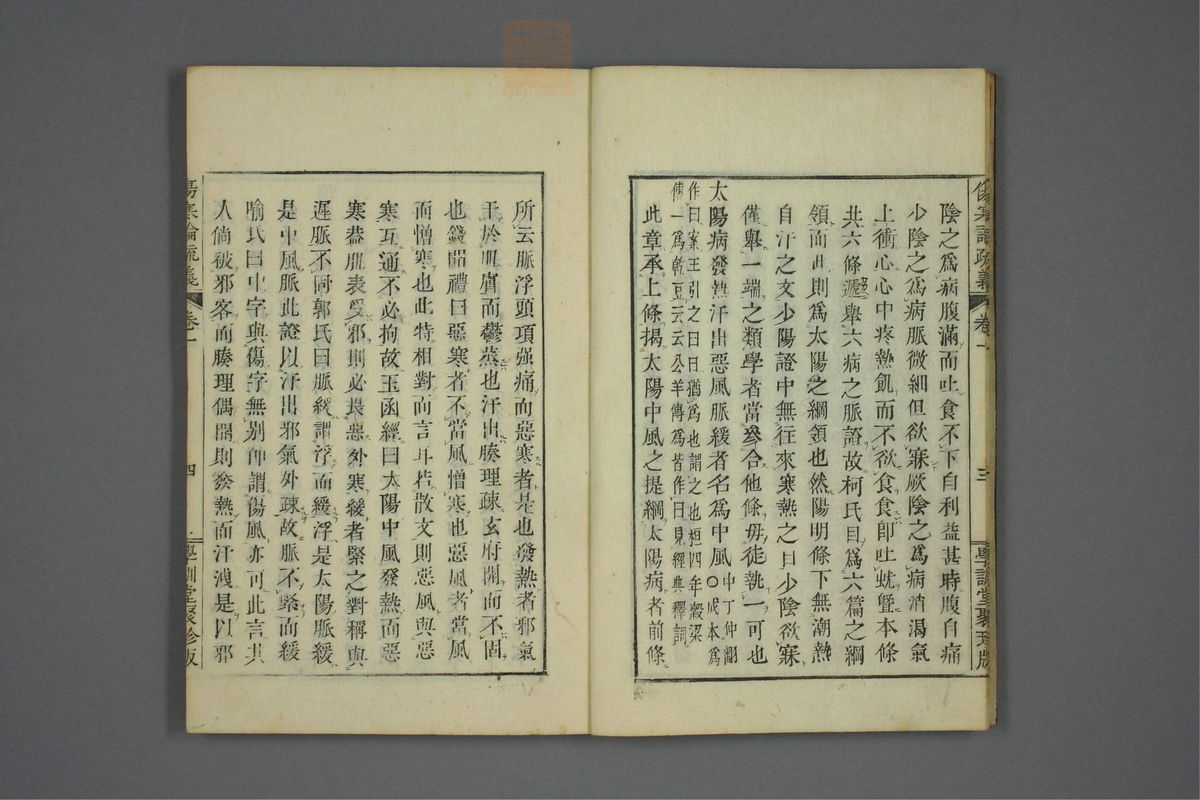 傷寒論疏義 卷一 三 學訓堂聚珍版
陰之爲病腹滿而吐食不下自利益甚時腹自痛
少陰之爲病脈微細但欲寐厥陰之爲病消渴氣
上衝心心中疼熱飢而不欲食食卽吐蚘曁本條
共六條遞舉六病之脈證故柯氏目爲六篇之綱
領而此則爲太陽之綱領也然陽明條下無潮熱
自汗之文少陽證中無往來寒熱之目少陰欲寐
僅舉一端之類學者當參合他條毋徒執一可也
太陽病發熱汗出惡風脈緩者名爲中風○中丁仲翻成本爲
作曰案王引之曰曰猶爲也謂之也桓四年穀梁
傳一爲乾豆云云公羊傳爲皆作曰見經典釋詞
此章承上條揭太陽中風之提綱太陽病者前條
所云脈浮頭項强痛而惡寒者是也發熱者邪氣
干於肌膚而鬱蒸也汗出腠理疎玄府開而不固
也錢聞禮曰惡寒者不當風憎寒也惡風者當風
而憎寒也此特相對而言耳若散文則惡風與惡
寒互通不必拘故玉函經曰太陽中風發熱而惡
寒葢肌表受邪則必畏惡外寒緩者緊之對稱與
遲脈不同郭氏曰脈緩謂浮而緩浮是太陽脈緩
是中風脈此證以汗出邪氣外疎故脈不緊而緩
喻氏曰中字與傷字無別卽謂傷風亦可此言其
人倘被邪客而腠理偶開則發熱而汗洩是以邪
傷寒論疏義 卷一 四 學訓堂聚珍版